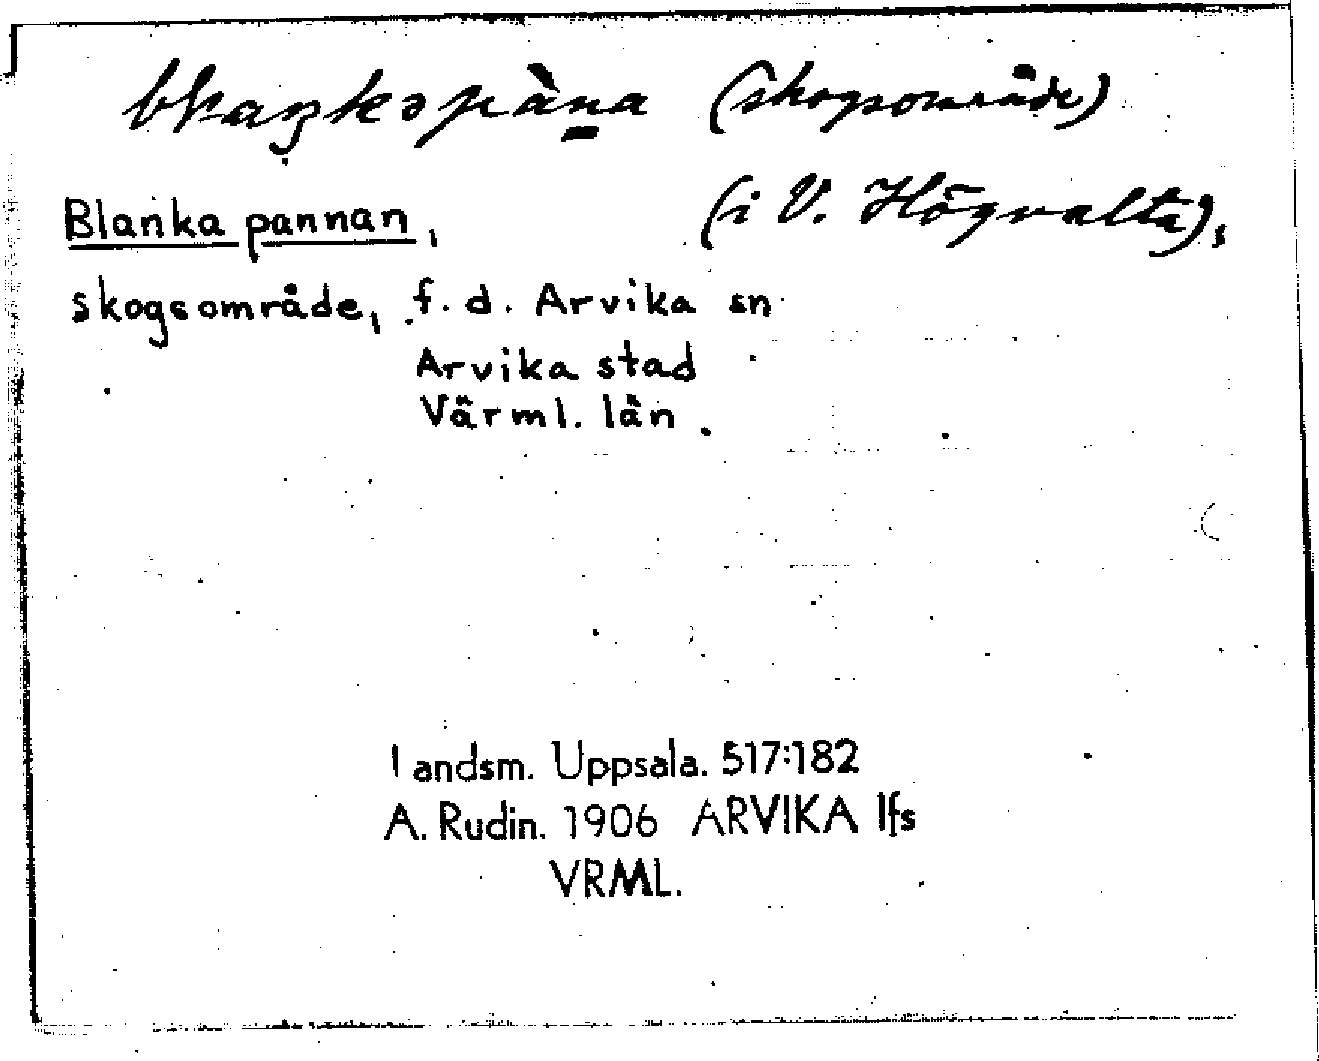 (skogsområde)
(i V. Högvalta),
Blanka pannan,
skogsområde, f.d. Arvika sn
Arvika stad
Värml. län
Landsm. Uppsala. 517:182
A. Rudin. 1906 ARVIKA lfs
VRML.